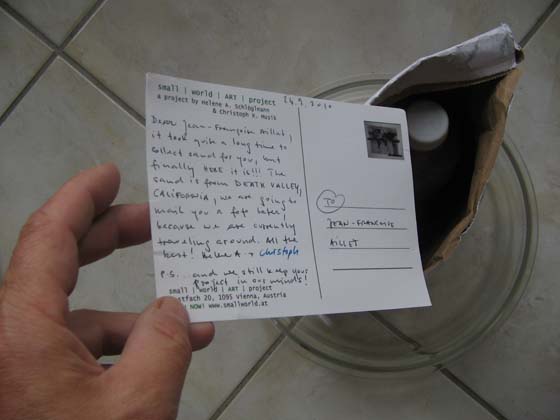 small | world | ART | project
a project by Helene A. Schlögimann
& Christoph R. Musik
24.9.2010
Dear Jean-Françoise Aillet,
it took quite a long time to
collect sand for you, but
finally HERE it is!!! The
sand is from DEATH VALLEY,
CALIFORNIA, we are going to
mail you a foto later,
because we are currently
traveling around. All the
best! Helene A +
Christoph
P.S. ...and we still keep your
project in our minds!
small | world | ART | project
stfach 20, 1095 Vienna, Austria
NOW! www.smallworld.at
TO
JEAN-FRANCOISE
AILLET